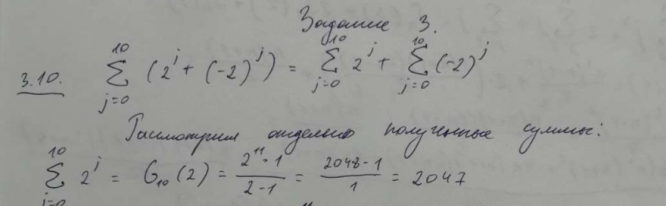 Задание 3.
3.10. \sum_{j=0}^{10} (2^j + (-2)^j) = \sum_{j=0}^{10} 2^j + \sum_{j=0}^{10} (-2)^j
Рассмотрим отдельно полученные суммы:
\sum_{j=0}^{10} 2^j = G_{10}(2) = \frac{2^{11}-1}{2-1} = \frac{2048-1}{1} = 2047